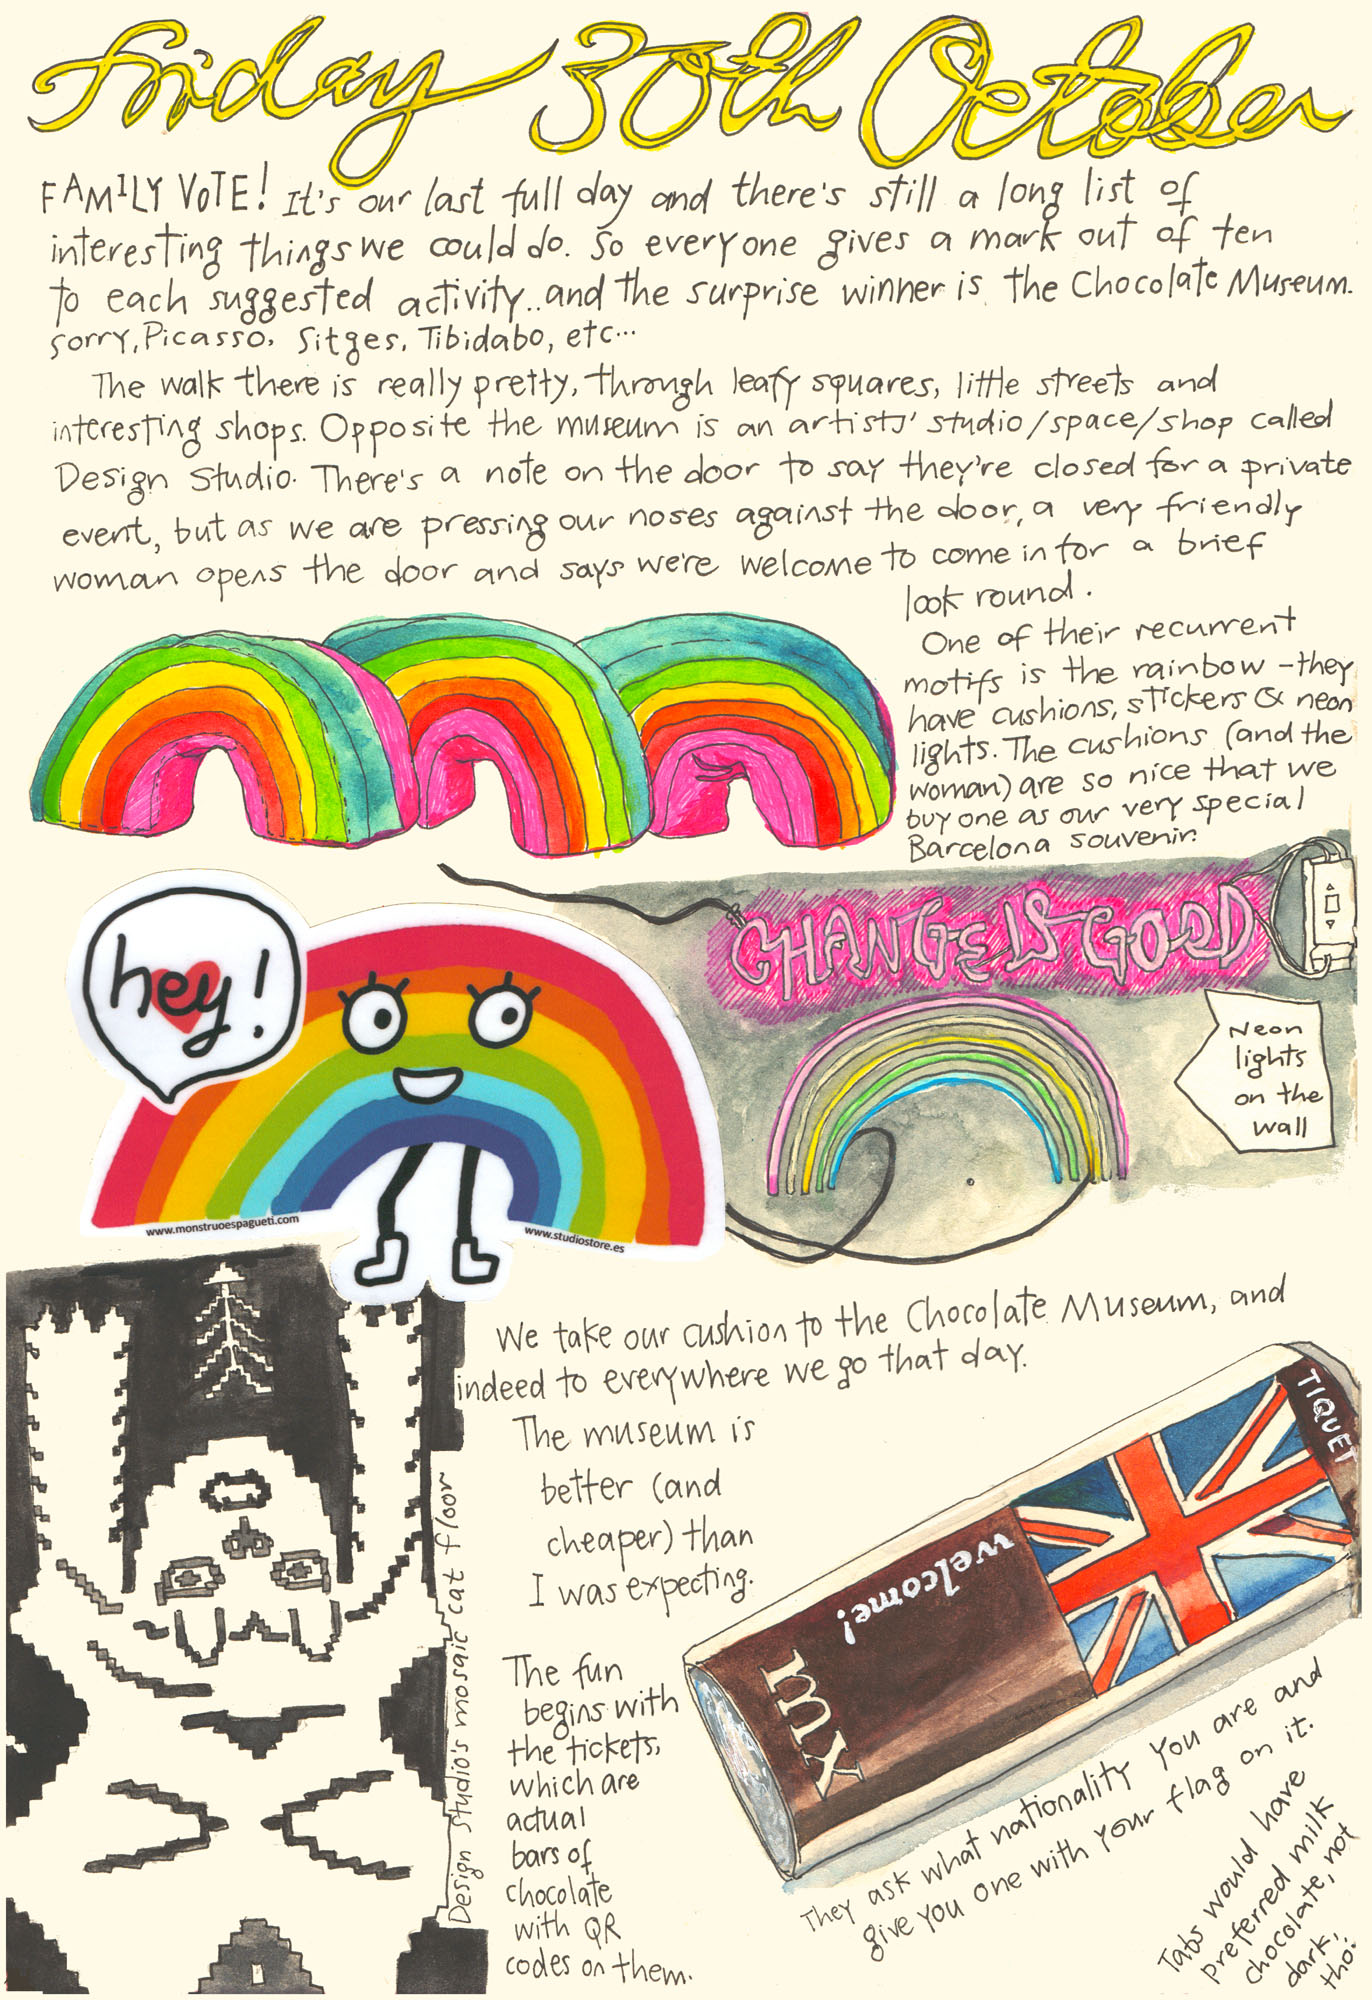 Friday 30th October
FAMILY VOTE! It's our last full day and there's still a long list of
interesting things we could do. So everyone gives a mark out of ten
to each suggested activity.. and the surprise winner is the Chocolate Museum.
Sorry, Picasso, Sitges, Tibidabo, etc...
The walk there is really pretty, through leafy squares, little streets and
interesting shops. Opposite the museum is an artists' studio/space/shop called
Design Studio. There's a note on the door to say they're closed for a private
event, but as we are pressing our noses against the door, a very friendly
woman opens the door and says we're welcome to come in for a brief
look round.
One of their recurrent
motifs is the rainbow - they
have cushions, stickers & neon
lights. The cushions (and the
woman) are so nice that we
buy one as our very special
Barcelona souvenir.
hey!
www.monstruoespagueti.com
www.studiostore.es
CHANGE IS GOOD
Neon
lights
on the
wall
We take our cushion to the Chocolate Museum, and
indeed to everywhere we go that day.
The museum is
better (and
cheaper) than
I was expecting.
Design Studio's mosaic cat floor
The fun
begins with
the tickets,
which are
actual
bars of
chocolate
with QR
codes on them.
TIQUET
welcome!
mx
They ask what nationality you are and
give you one with your flag on it.
Tabs would have
preferred milk
chocolate, not
dark,
tho.